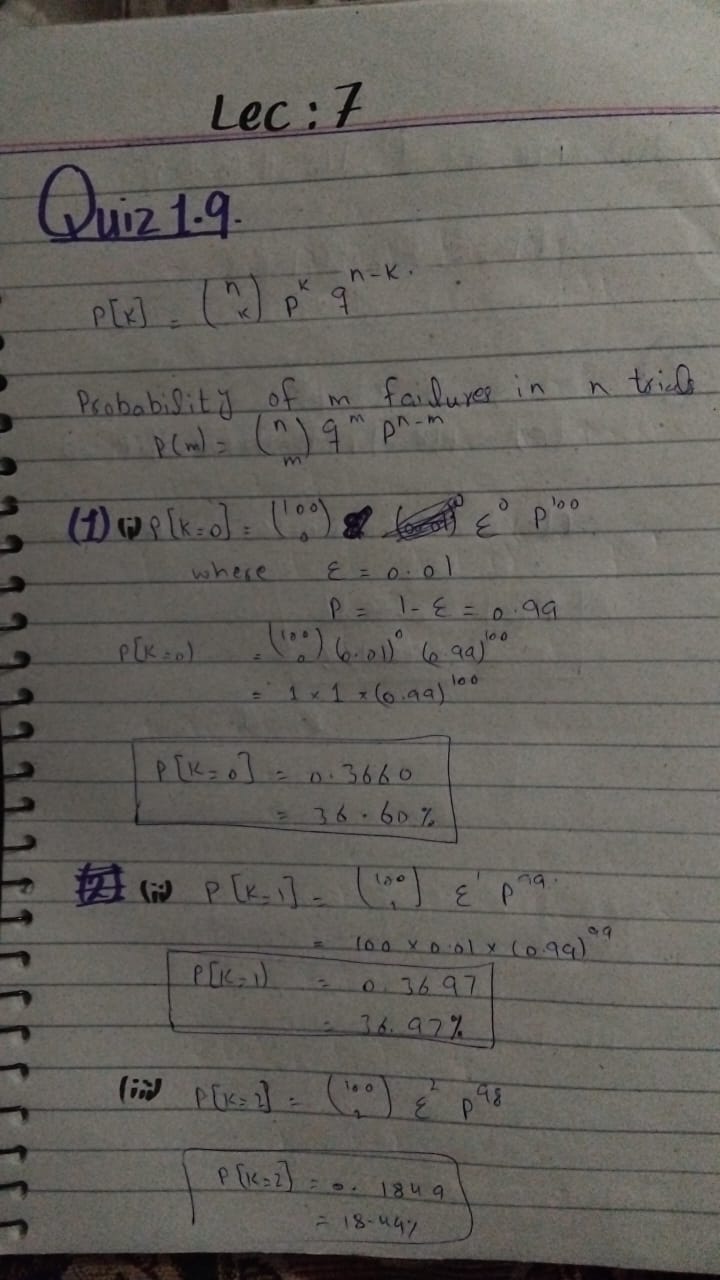 Lec : 7
Quiz 1.9.
P[K] = (n K) p^K q^n-K.
Probability of m failures in n trials
P(m) = (n m) q^m p^n-m
(1) (i) P[K=0] = (100 0) ε^0 P^100
where ε = 0.01
P = 1-ε = 0.99
P(K=0) = (100 0) (0.01)^0 (0.99)^100
= 1 × 1 × (0.99)^100
P[K=0] = 0.3660
= 36.60%
(ii) P[K=1] = (100 1) ε^1 P^99.
= 100 × 0.01 × (0.99)^99
P[K=1) = 0.3697
= 36.97%
(iii) P[K=2] = (100 2) ε^2 P^98
P[K=2] = 0.1849
= 18.44%